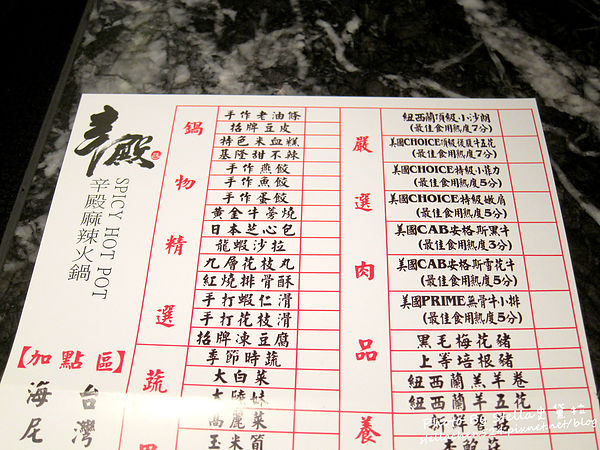 辛殿
SPICY HOT POT
辛殿麻辣火鍋
【加點區】
海
尼
台
灣
鍋物精選
手作老油條
招牌豆皮
特色米血糕
基隆甜不辣
手作燕餃
手作魚餃
手作蛋餃
黃金牛蒡燒
日本芝心包
龍蝦沙拉
九層花枝丸
紅燒排骨酥
手打蝦仁滑
手打花枝滑
招牌凍豆腐
蔬
季節時蔬
大白菜
大陸妹
高麗菜
玉米筍
嚴選肉品
紐西蘭頂級小沙朗
(最佳食用熟度7分)
美國CHOICE頂級後腹牛五花
(最佳食用熟度7分)
美國CHOICE特級小菲力
(最佳食用熟度5分)
美國CHOICE特級嫩肩
(最佳食用熟度5分)
美國CAB安格斯黑牛
(最佳食用熟度3分)
美國CAB安格斯雪花牛
(最佳食用熟度5分)
美國PRIME無骨牛小排
(最佳食用熟度5分)
黑毛梅花豬
上等培根豬
紐西蘭羔羊卷
紐西蘭羊五花
養
新鮮香菇
杏鮑菇